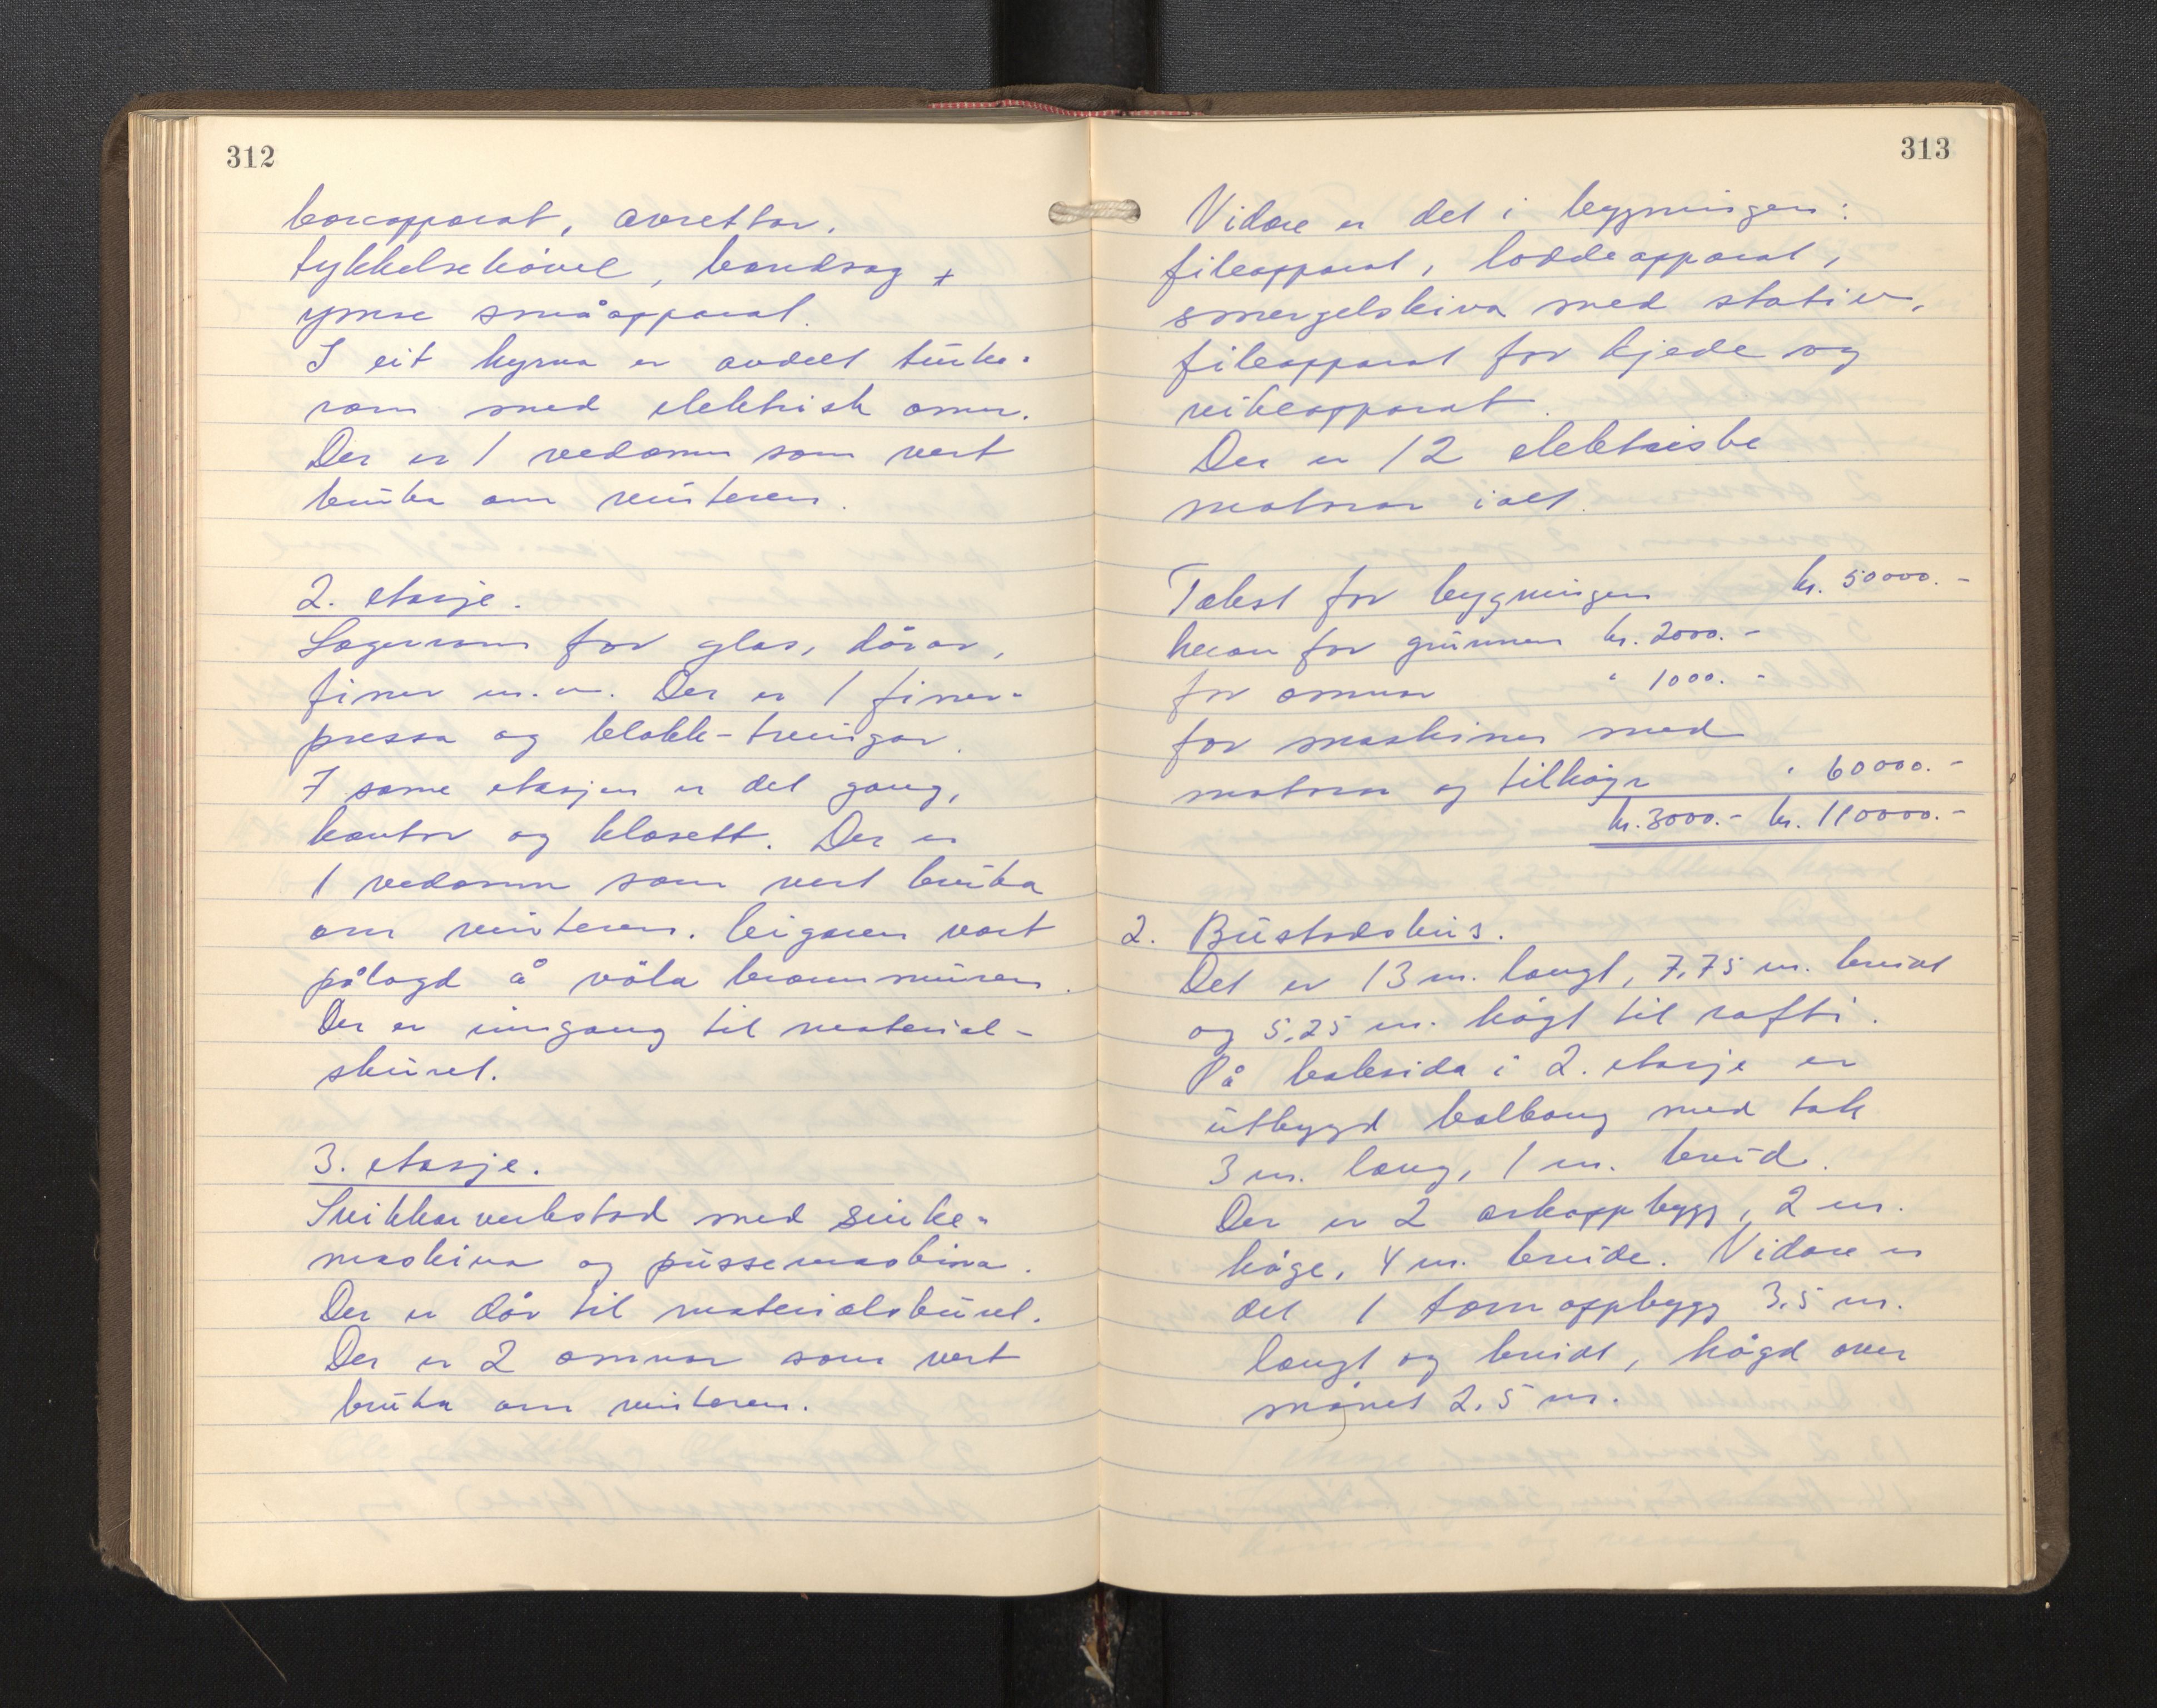 312
boreapparat, avrettar,
tykkelsehövel, bandsag +
ymse småapparat.
I eit hyrna er avdelt turke-
rom med elektrisk omn.
Der er 1 vedomn som vert
bruka om vinteren.
2. etasje.
Lagerrom for glas, dörar,
finer m.v. Der er 1 finer-
pressa og blokk-tvingar.
I same etasjen er det gang,
kontor og klosett. Der er
1 vedomn som vert bruka
om vinteren. Eigaren vart
pålagd å völa brannmuren.
Der er inngang til material-
skuret.
3. etasje.
Snikkarverkstad med sinke-
maskina og pussemaskina.
Der er dör til materialskuret.
Der er 2 omnar som vert
bruka om vinteren.
313
Vidare er det i bygningen:
fileapparat, loddeapparat,
smergelskiva med stativ,
fileapparat for kjede og
vikleapparat.
Der er 12 elektriske
motorar i alt.
Takst for bygningen kr. 50000.-
herav for grunnen kr. 2000.-
for omnar " 1000.-
for maskiner med
motorar og tilhöyr " 60000.-
kr. 3000.- kr. 110000.-
2. Bustadshus.
Det er 13 m. langt, 7,75 m. breidt
og 5,25 m. högt til rafti.
På baksida i 2. etasje er
utbygd balkong med tak
3 m. lang, 1 m. breid.
Der er 2 arkoppbygg, 2 m.
höge, 4 m. breide. Vidare er
det 1 tornoppbygg 3,5 m.
langt og breidt, högd over
mönet 2,5 m.